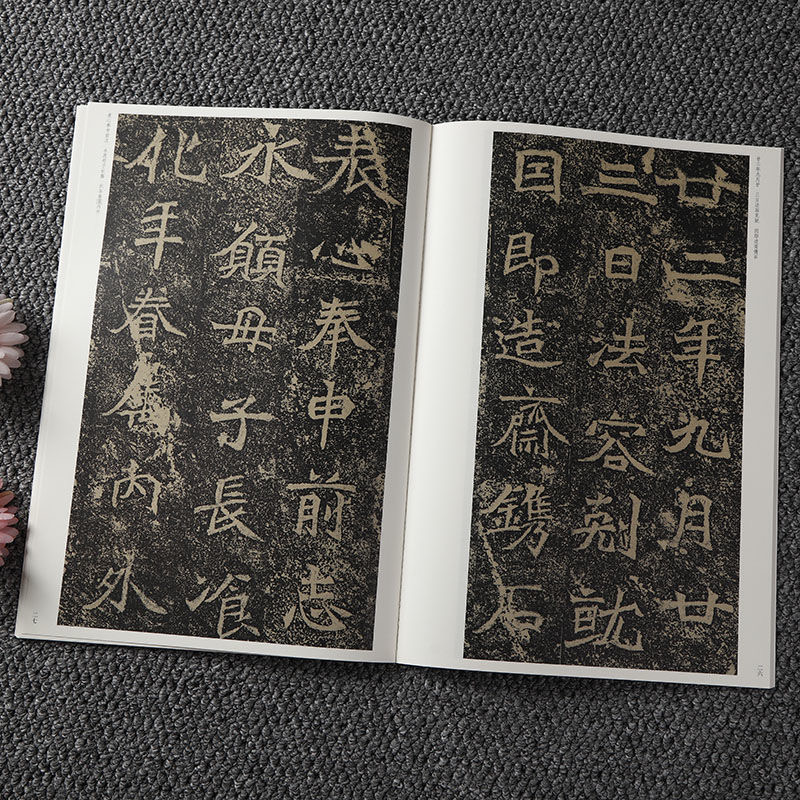 廿二年九月廿
三日法容剋就
囙即造齋鎸石
二六
表心奉申前志
永願母子長飡
化年眷屬内外
二七